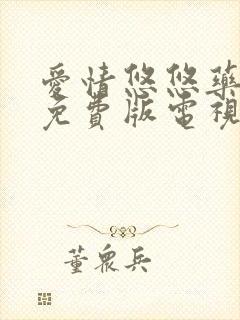 愛情悠悠藥
免費版電視
董眾兵